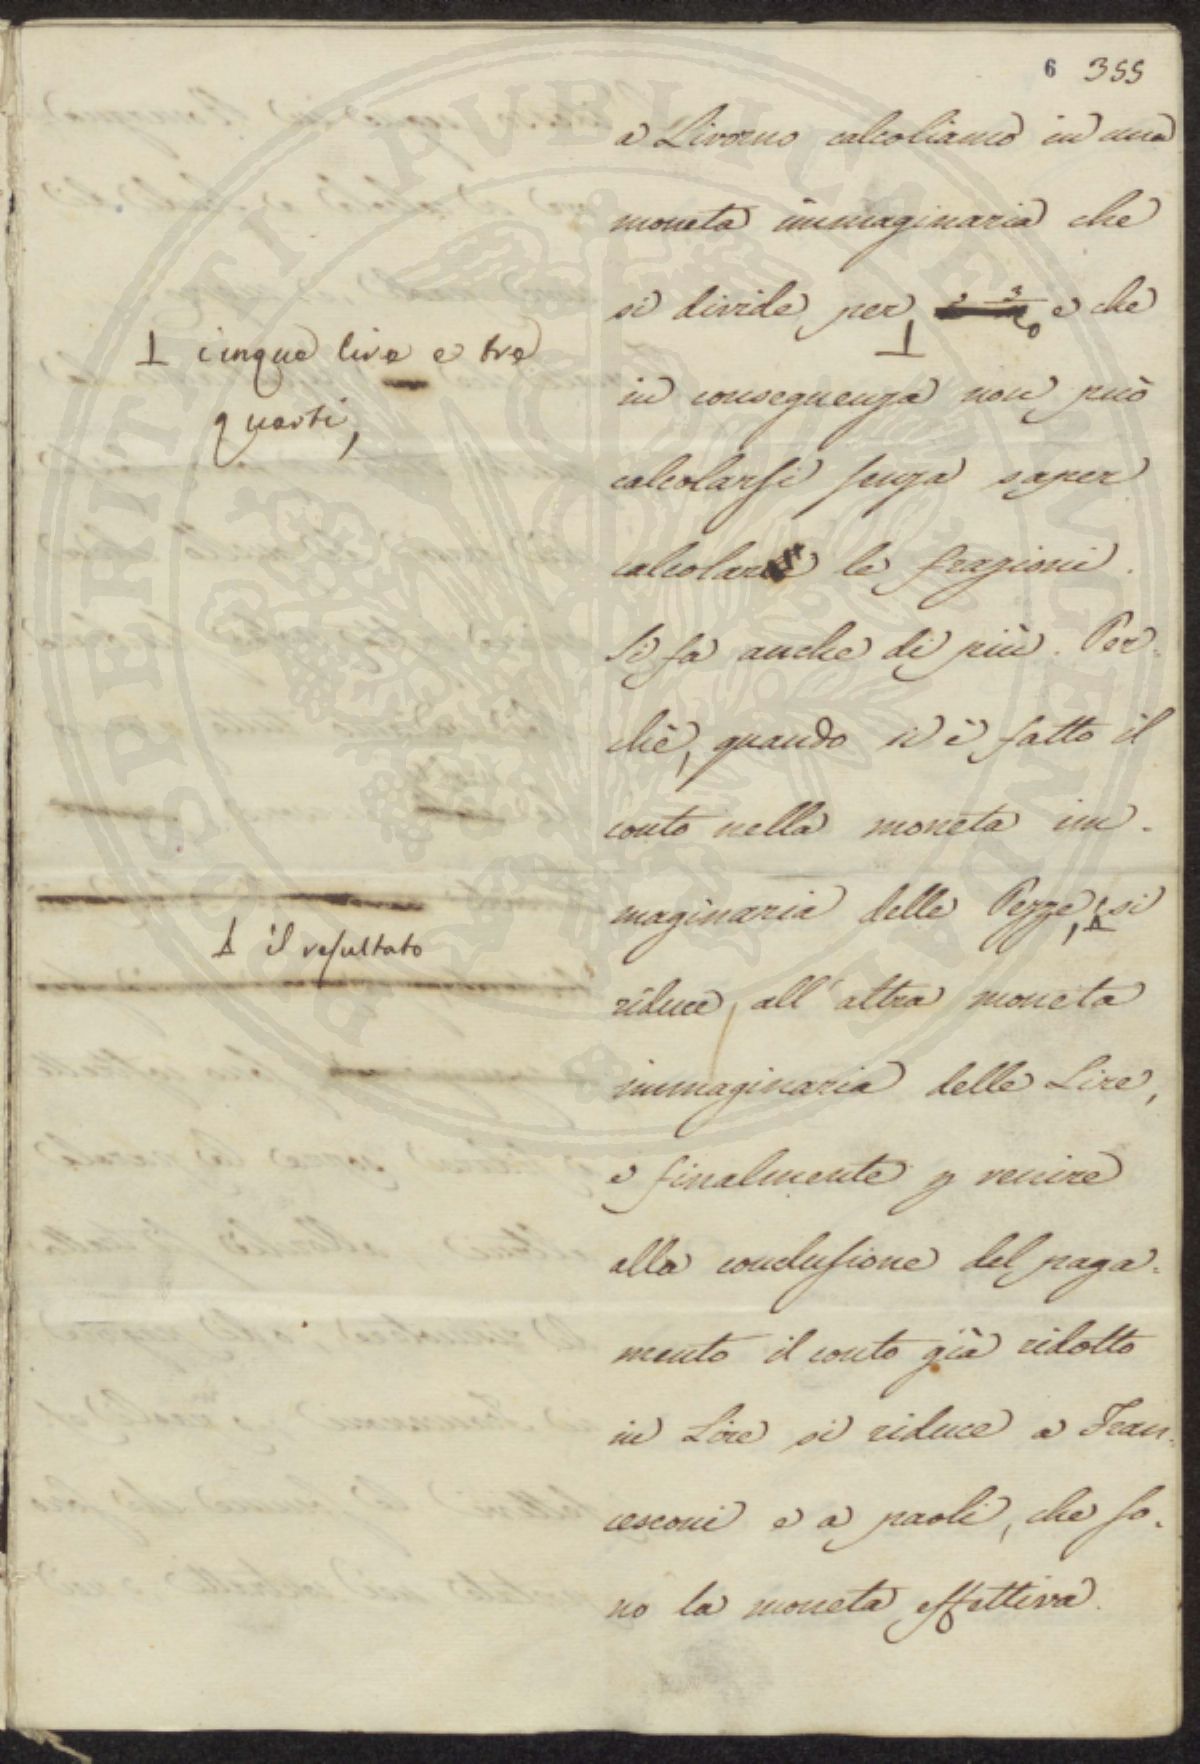 6 355
a Livorno calcoliamo in una
moneta immaginaria che
si divide per ⊥ e che
in conseguenza non può
calcolarsi senza saper
calcolare le frazioni.
Si fa anche di più. Per-
chè, quando si è fatto il
conto nella moneta im-
maginaria delle Pezze, si
riduce all'altra moneta
immaginaria delle Lire,
e finalmente p venire
alla conclusione del paga-
mento il conto già ridotto
in Lire si riduce a Fran-
cesconi e a paoli, che so-
no la moneta effettiva.
⊥ cinque lire e tre
quarti,
⊥ il resultato
PERITI PVBLICAE LVCENDAE PROSPERITATI